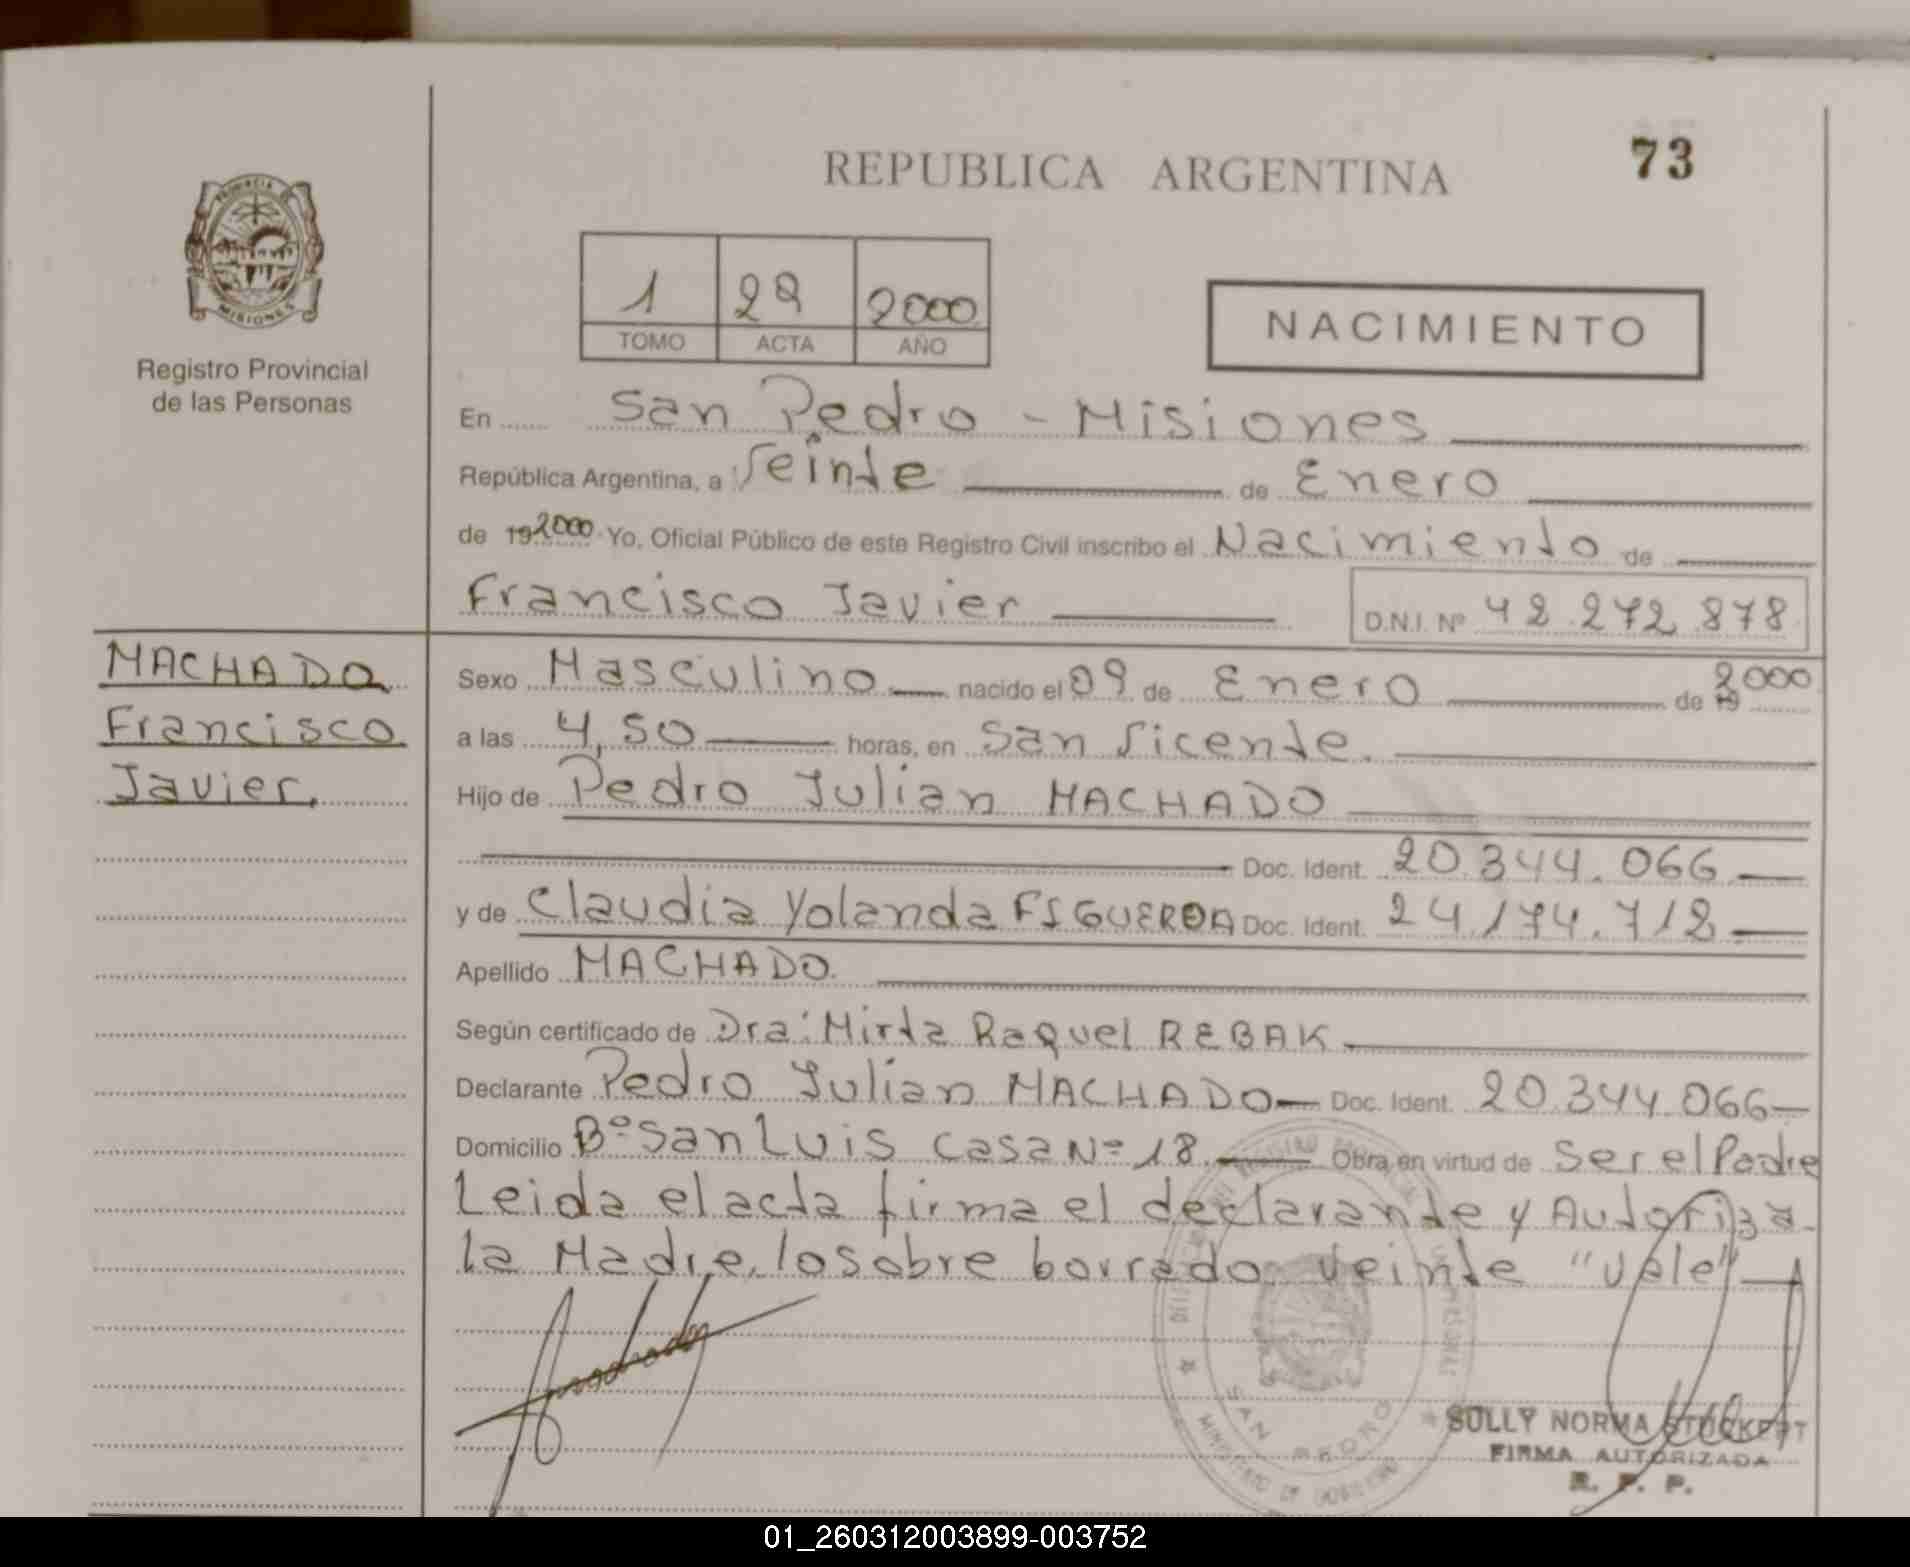 73
REPUBLICA ARGENTINA
PROVINCIA DE
MISIONES
Registro Provincial
de las Personas
1 22 2000
TOMO ACTA AÑO
NACIMIENTO
En San Pedro - Misiones
República Argentina, a Veinte de Enero
de 19 2000 Yo, Oficial Público de este Registro Civil inscribo el Nacimiento de
Francisco Javier D.N.I. Nº 42.272.878
MACHADO
Francisco
Javier.
Sexo Masculino nacido el 09 de Enero de 19 2000
a las 4,50 horas, en San Vicente.
Hijo de Pedro Julian MACHADO
Doc. Ident. 20.344.066
y de Claudia Yolanda FIGUEROA Doc. Ident. 24.174.712
Apellido MACHADO.
Según certificado de Dra: Mirta Raquel REBAK
Declarante Pedro Julian MACHADO Doc. Ident. 20.344.066
Domicilio Bº San Luis Casa Nº 18. Obra en virtud de Ser el Padre
Leida el acta firma el declarante y Autoriza
la Madre, lo sobre borrado veinte "Vale"
SAN PEDRO
MINISTERIO DE GOBIERNO
SULLY NORMA STUCKERT
FIRMA AUTORIZADA
R. P. P.
01_260312003899-003752